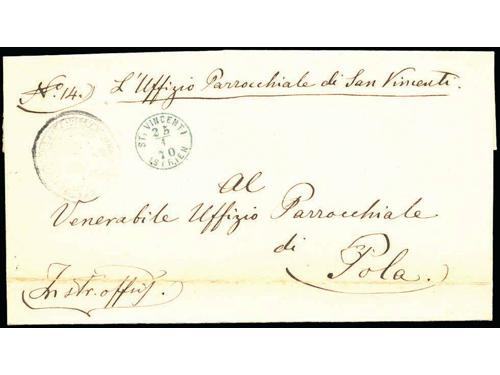 No. 14. L'Uffizio Parrocchiale di San Vincenti.
ST. VINCENTI
25
1
70
ISTRIEN
Al
Venerabile Uffizio Parrocchiale
di
Pola.